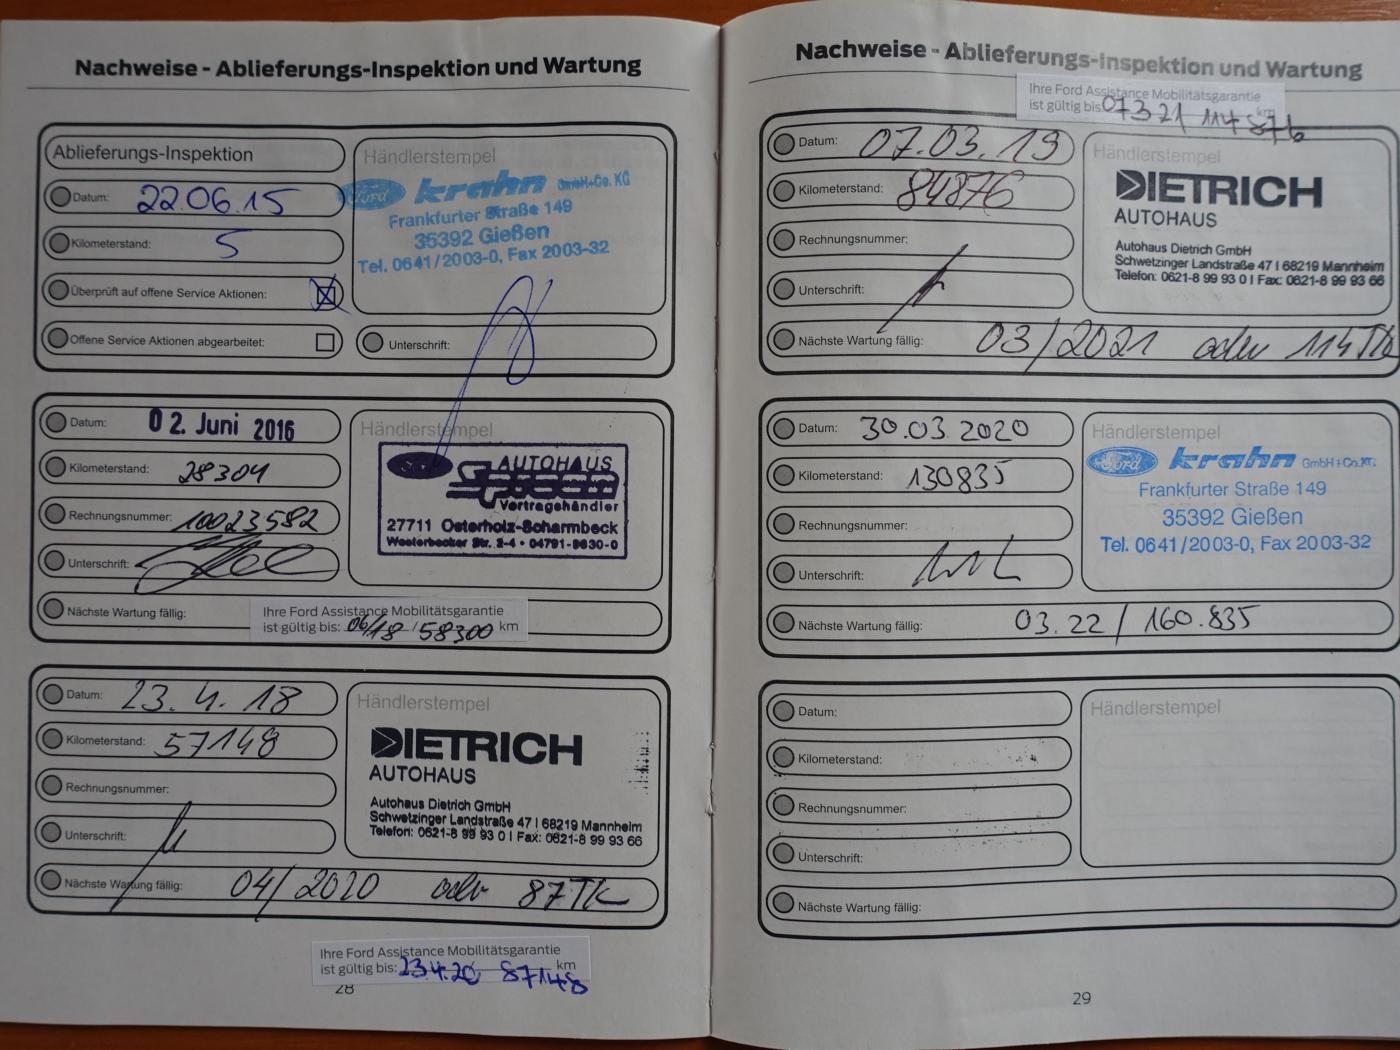 Nachweise - Ablieferungs-Inspektion und Wartung
Ablieferungs-Inspektion
Datum: 22.06.15
Kilometerstand: 5
Überprüft auf offene Service Aktionen: X
Offene Service Aktionen abgearbeitet:
Händlerstempel
Ford krahn GmbH+Co. KG
Frankfurter Straße 149
35392 Gießen
Tel. 0641/2003-0, Fax 2003-32
Unterschrift:
Datum: 02. Juni 2016
Kilometerstand: 28304
Rechnungsnummer: 10023582
Unterschrift:
Nächste Wartung fällig:
Händlerstempel
AUTOHAUS
Vertragshändler
27711 Osterholz-Scharmbeck
Westerbecker Str. 2-4 • 04791-9630-0
Ihre Ford Assistance Mobilitätsgarantie
ist gültig bis: 06/18 / 58300 km
Datum: 23.4.18
Kilometerstand: 57148
Rechnungsnummer:
Unterschrift:
Nächste Wartung fällig: 04/2020 oder 87TK
Händlerstempel
DIETRICH
AUTOHAUS
Autohaus Dietrich GmbH
Schwetzinger Landstraße 47 I 68219 Mannheim
Telefon: 0621-8 99 93 0 I Fax: 0621-8 99 93 66
Ihre Ford Assistance Mobilitätsgarantie
ist gültig bis: 23.4.20 87148 km
28
Nachweise - Ablieferungs-Inspektion und Wartung
Ihre Ford Assistance Mobilitätsgarantie
ist gültig bis: 07.3.21 / 114 876 km
Datum: 07.03.19
Kilometerstand: 84876
Rechnungsnummer:
Unterschrift:
Nächste Wartung fällig: 03/2021 oder 114TK
Händlerstempel
DIETRICH
AUTOHAUS
Autohaus Dietrich GmbH
Schwetzinger Landstraße 47 I 68219 Mannheim
Telefon: 0621-8 99 93 0 I Fax: 0621-8 99 93 66
Datum: 30.03.2020
Kilometerstand: 130835
Rechnungsnummer:
Unterschrift:
Nächste Wartung fällig: 03.22 / 160.835
Händlerstempel
Ford krahn GmbH+Co. KG
Frankfurter Straße 149
35392 Gießen
Tel. 0641/2003-0, Fax 2003-32
Datum:
Kilometerstand:
Rechnungsnummer:
Unterschrift:
Nächste Wartung fällig:
Händlerstempel
29